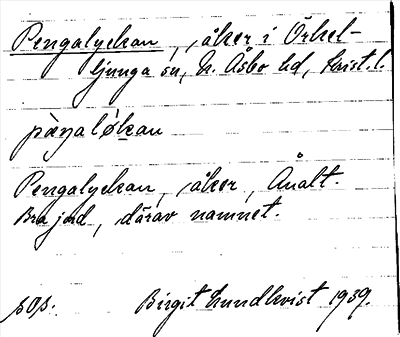 Pengalyckan, åker i Örkel-
ljunga sn, N. Åsbo hd, Krist. l.
pæŋaløkan
Pengalyckan, åker, Åualt.
Bra jord, därav namnet.
sOp. Birgit Lundkvist 1939.